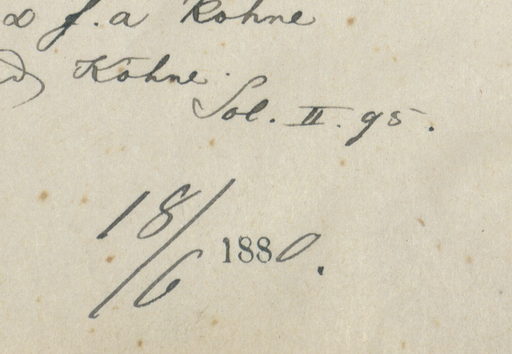 f. a Kohne
Kohne.
Vol. II. 95.
18/6 1880.